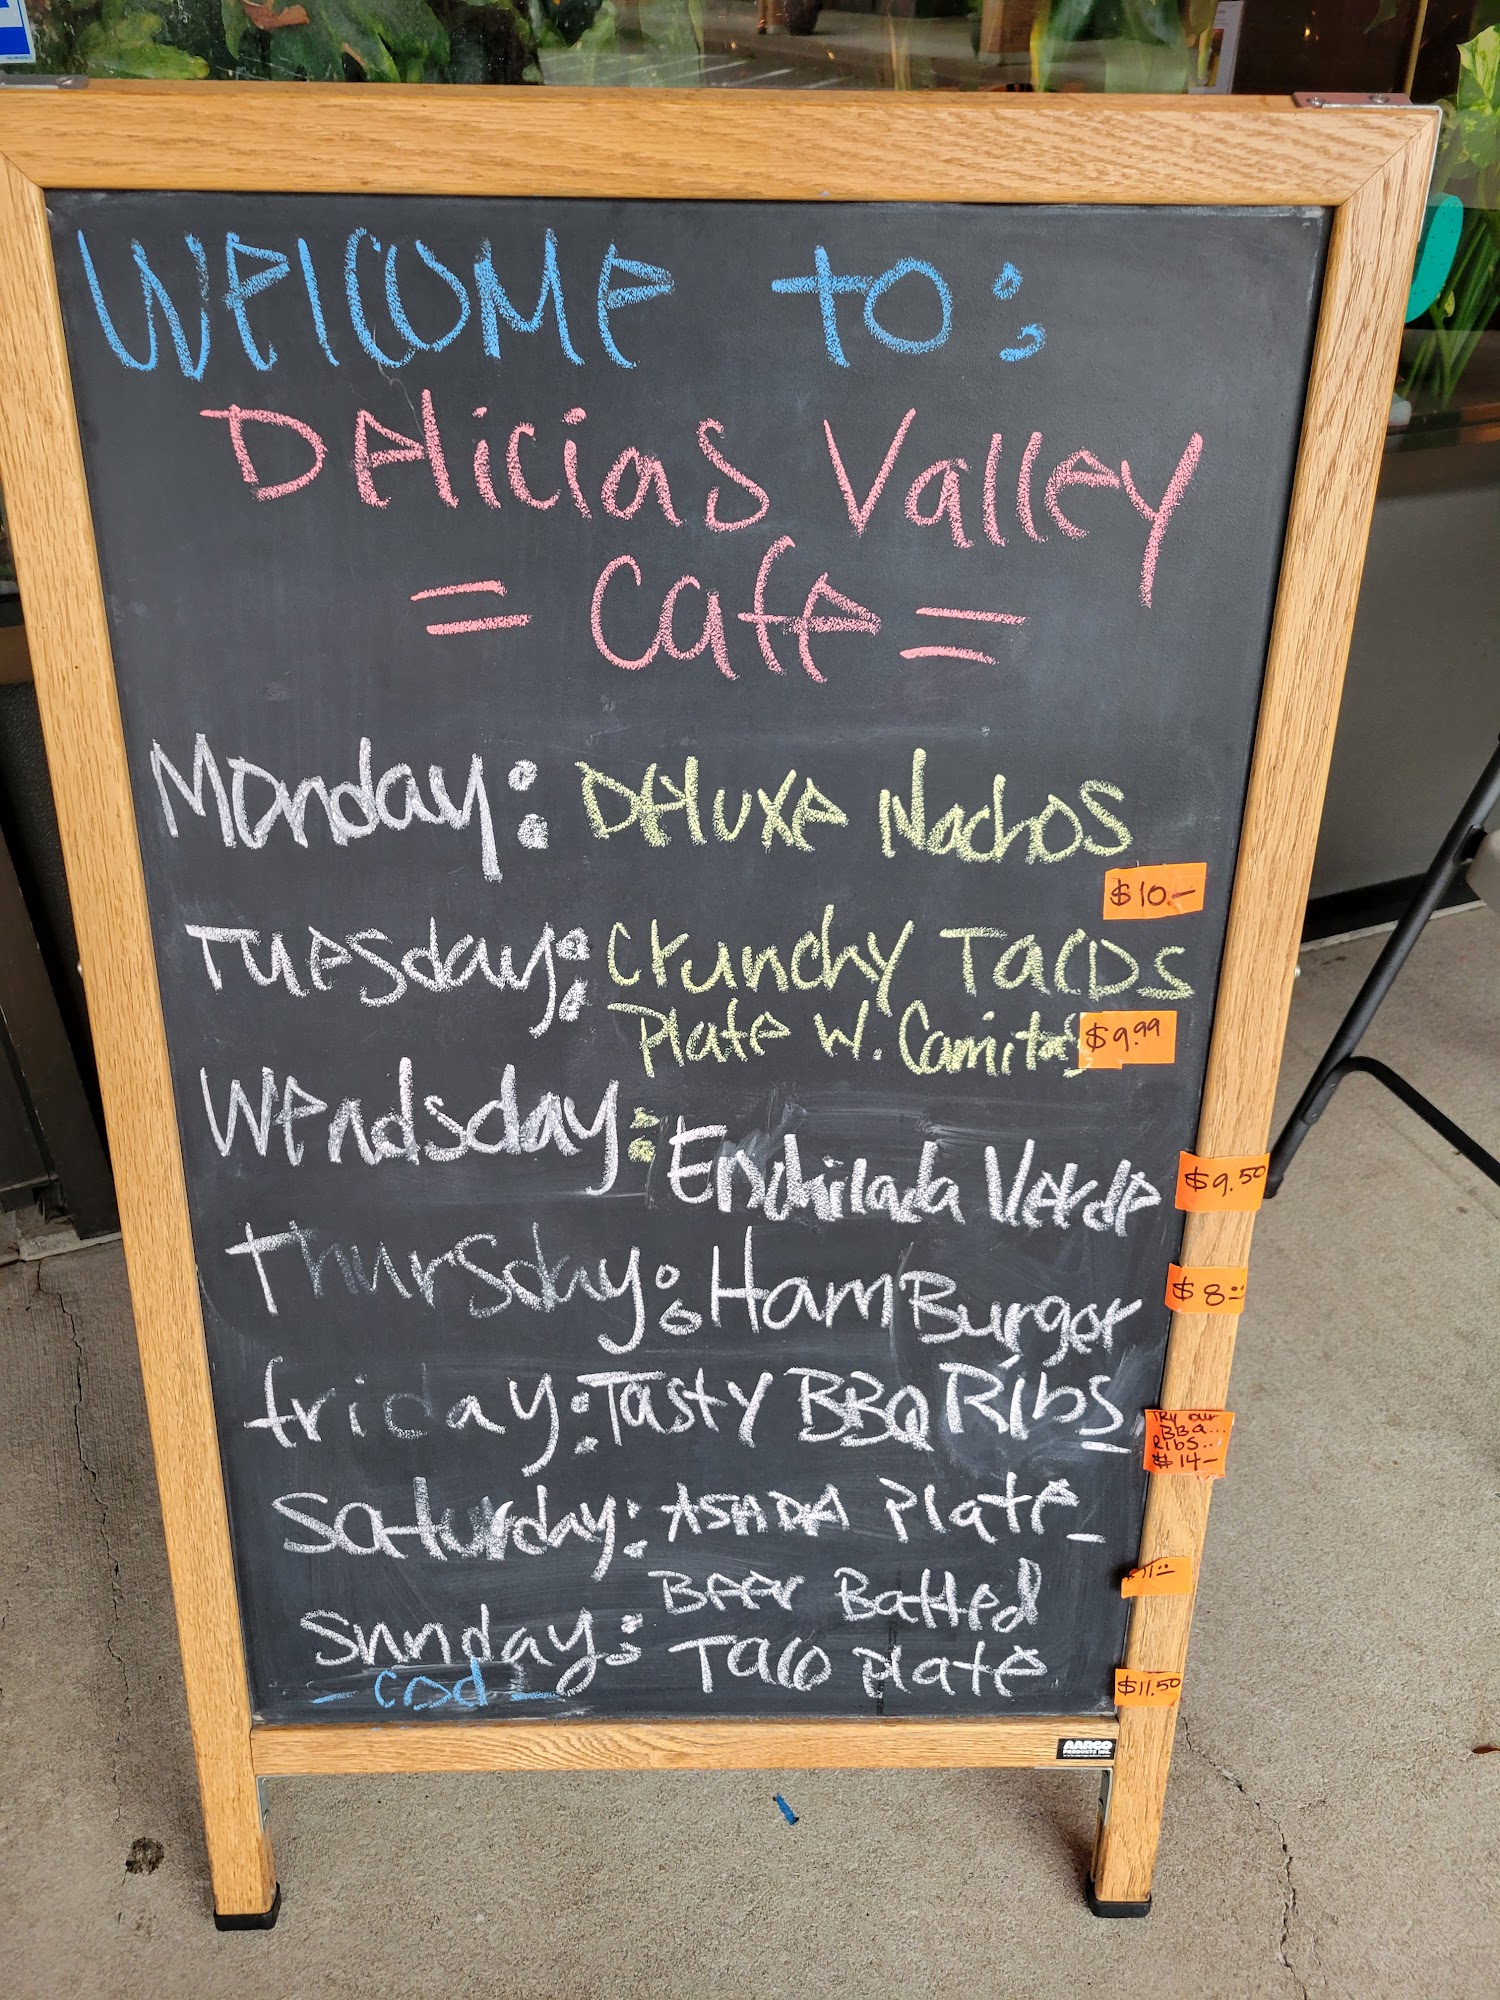 Welcome to:
Delicias Valley
= Cafe =
Monday: Deluxe Nachos
$10.-
Tuesday: Crunchy Tacos
Plate W. Carnitas $9.99
Wendsday: Enchilada Verde $9.50
Thursday: HamBurger $8.00
friday: Tasty BBQ Ribs
TRY our
BBQ...
RIBS..
$14-
Saturday: ASADA Plate
$11.00
Sunday: Beer Batted
Taco Plate $11.50
- Cod -
AARCO
PRODUCTS INC.